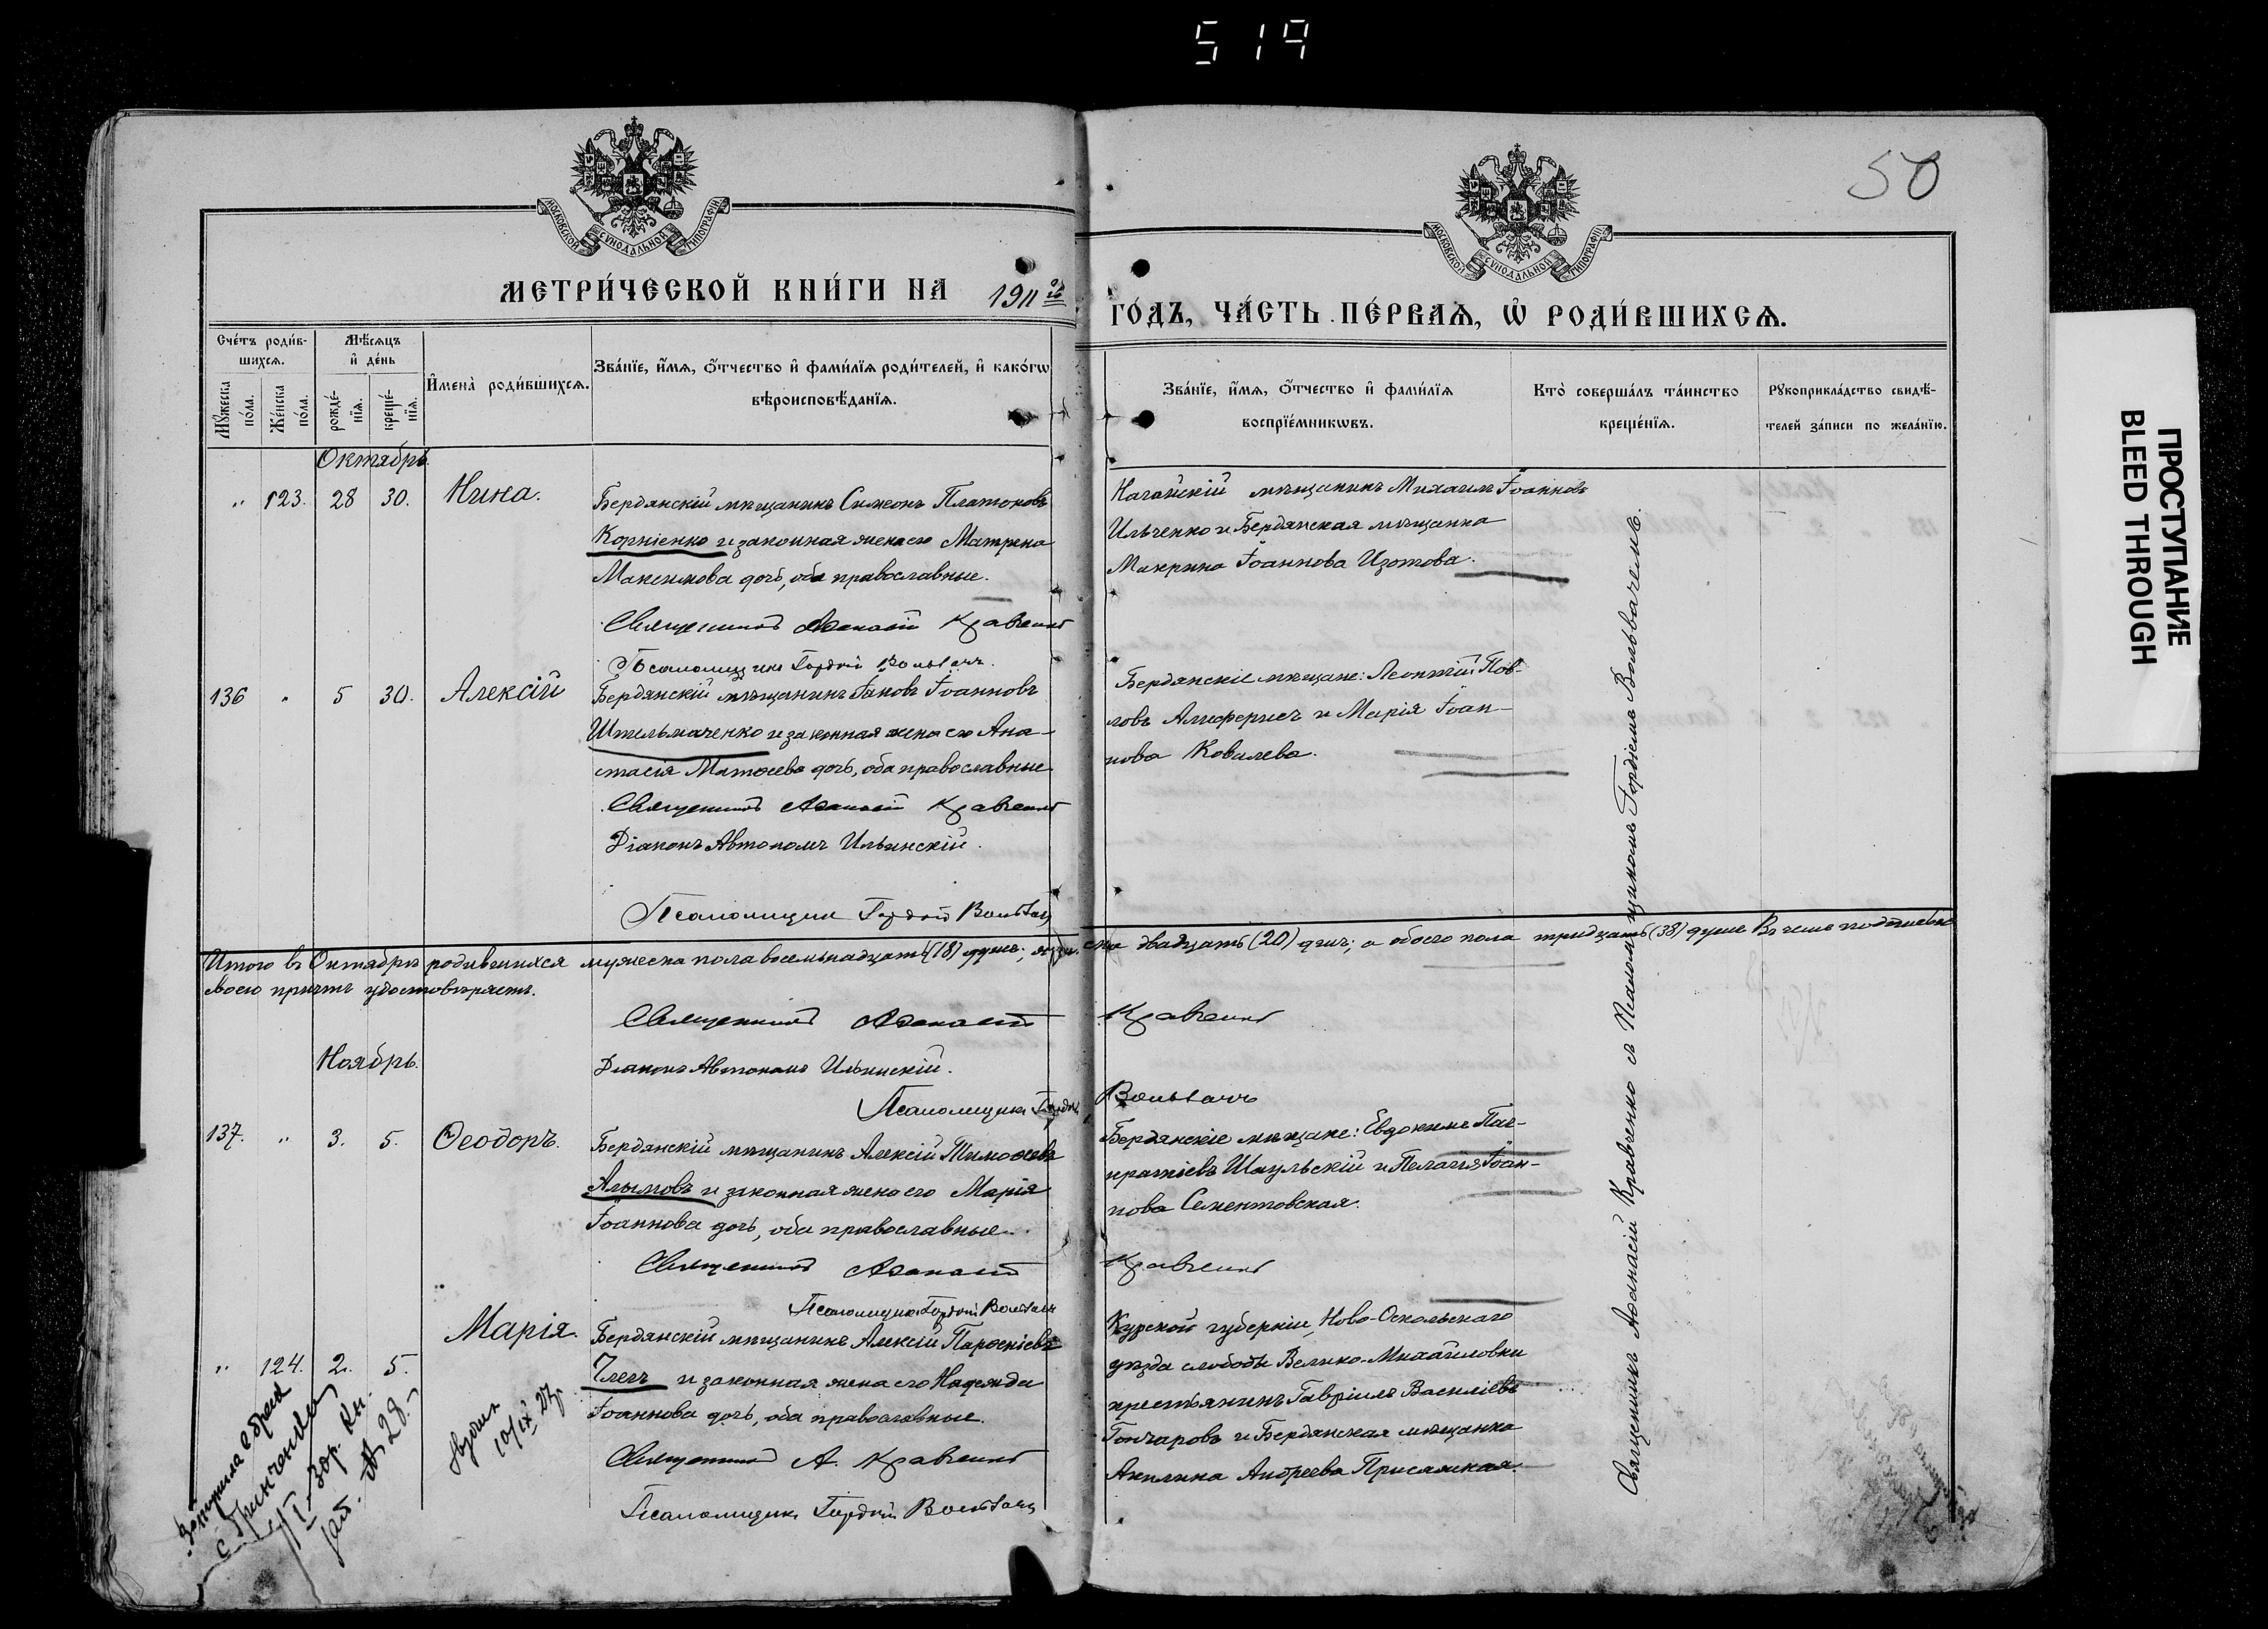 519
50
МОСКОВСКОЙ СѴНОДАЛЬНОЙ ТИПОГРАФІИ
МОСКОВСКОЙ СѴНОДАЛЬНОЙ ТИПОГРАФІИ
МЕТРИ́ЧЕСКОЙ КНИ́ГИ НА 1911 й
ГО́ДЪ, ЧА́СТЬ ПЕ́РВАѦ, Ѡ҆ РОДИ́ВШИХСѦ.
Сче́тъ роди́в-
шихсѧ.
Мꙋ́жеска по́ла.
Же́нска по́ла.
Мѣ́сѧцъ
и҆ де́нь
рожде́-
нїѧ.
креще́-
нїѧ.
И҆мена̀ роди́вшихсѧ.
Зва́нїе, и҆́мѧ, ѻ҆́тчество и҆ фами́лїѧ роди́телей, и҆ како́гѡ
вѣроисповѣ́данїѧ.
Зва́нїе, и҆́мѧ, ѻ҆́тчество и҆ фами́лїѧ
воспрїе́мникѡвъ.
Кто̀ соверша́лъ та́инство
креще́нїѧ.
Рꙋкоприкла́дство свидѣ́-
телей за́писи по жела́нїю.
Октябрь.
„ 123. 28 30. Нина.
Бердянскій мѣщанинъ Симеонъ Платоновъ
Корніенко и законная жена его Матрена
Максимова дочь, оба православные.
Священникъ Аѳанасій Кравченко
Псаломщикъ Гордій Вольвачъ.
Ногайскій мѣщанинъ Михаилъ Іоанновъ
Ильченко и Бердянская мѣщанка
Макрина Іоаннова Изотова.
136 „ 5 30. Алексій
Бердянскій мѣщанинъ Іаковъ Іоанновъ
Штельмаченко и законная жена его Ана-
стасія Матѳеева дочь, оба православные
Священникъ Аѳанасій Кравченко
Діаконъ Автономъ Ильинскій.
Псаломщикъ Гордій Вольвачъ
Бердянскіе мѣщане: Леонтій Пав-
ловъ и Марія Іоан-
нова Ковалева.
Итого въ Октябрѣ родившихся мужеска пола восемьнадцать (18) душъ, женска двадцать (20) душъ; а обоего пола тридцать (38) душъ Въ чемъ подписью
своею причтъ удостовѣряетъ.
Священникъ Аѳанасій Кравченко
Діаконъ Автономъ Ильинскій.
Псаломщикъ Гордій Вольвачъ
Ноябрь.
137. „ 3. 5. Ѳеодоръ.
Бердянскій мѣщанинъ Алексій Тимоѳеевъ
Алымовъ и законная жена его Марія
Іоаннова дочь, оба православные.
Священникъ Аѳанасій Кравченко
Псаломщикъ Гордій Вольвачъ
Бердянскіе мѣщане: Евдокимъ Пан-
кратіевъ Шкульскій и Пелагія Іоан-
нова Сементовская.
„ 124. 2. 5. Марія.
Бердянскій мѣщанинъ Алексій
и законная жена его Надежда
Іоаннова дочь, оба православные.
Священникъ А. Кравченко
Псаломщикъ Гордій Вольвачъ
Курской губерніи, Ново-Оскольскаго
уѣзда слободы Велико-Михайловки
крестьянинъ Гавріилъ Василіевъ
Гончаровъ и Бердянская мѣщанка
Акилина Андреева
Священникъ Аѳанасій Кравченко съ Псаломщикомъ Гордіемъ Вольвачемъ.
ПРОСТУПАНИЕ
BLEED THROUGH